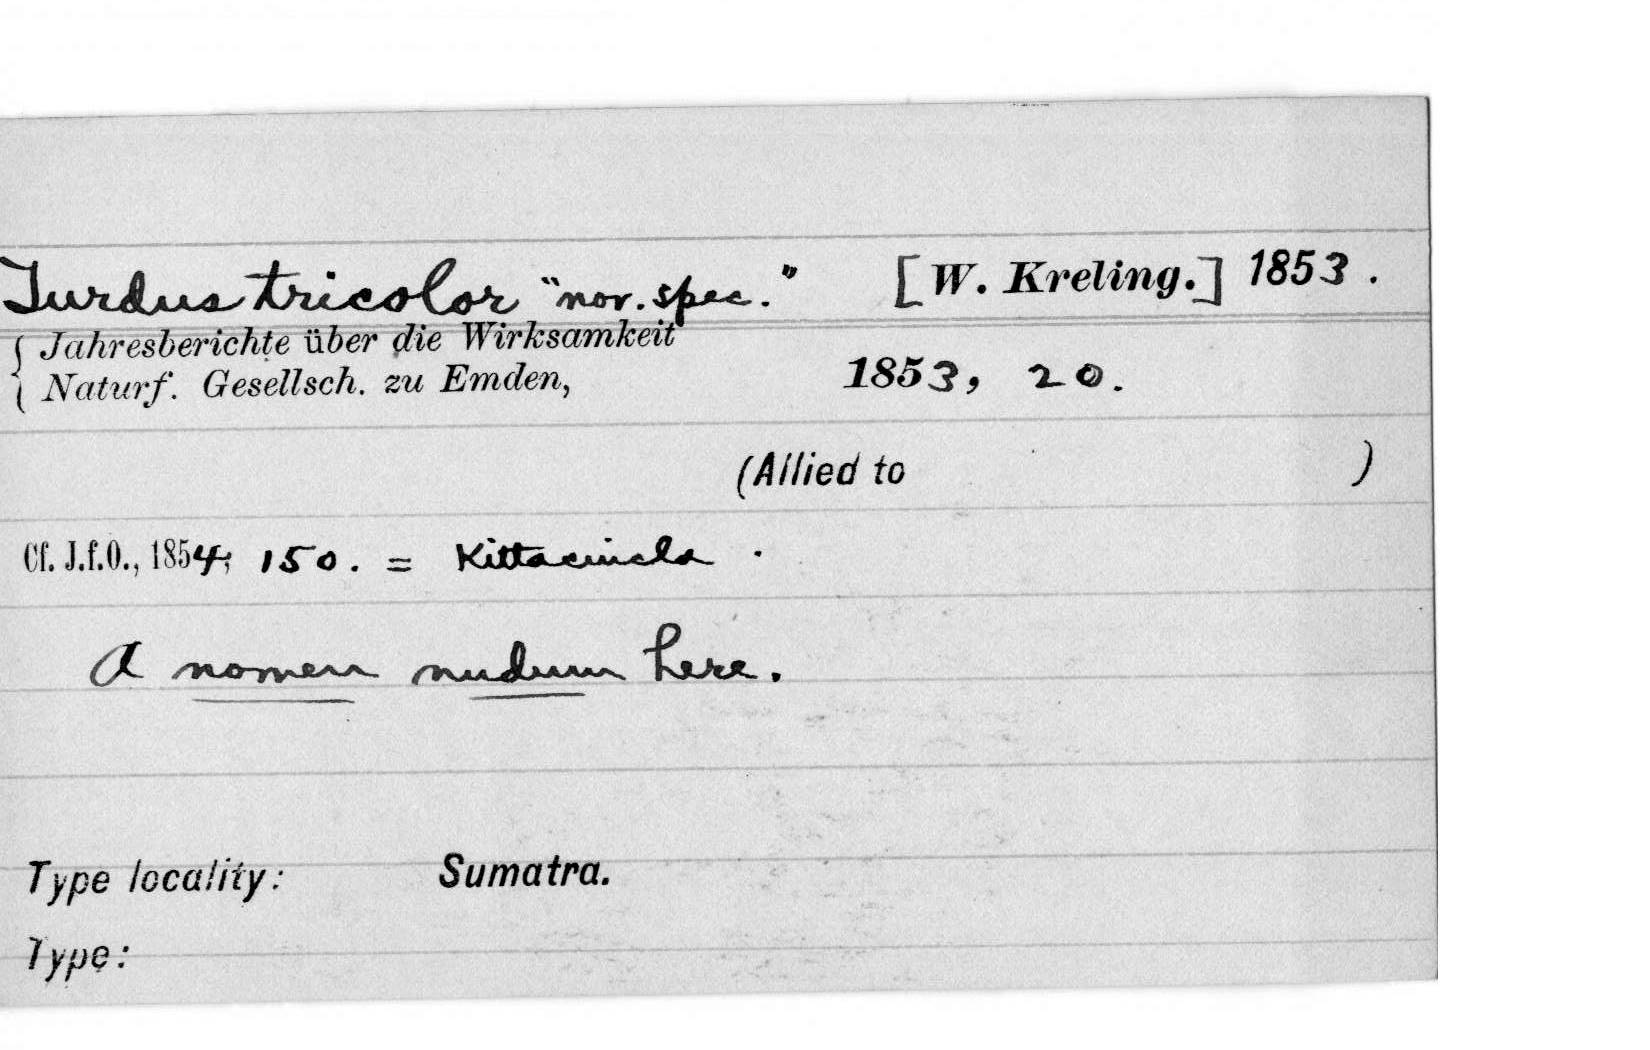 Turdus tricolor "nov. spec." [W. Kreling.] 1853.
Jahresberichte über die Wirksamkeit
Naturf. Gesellsch. zu Emden, 1853, 20.
(Allied to )
Cf. J.f.O., 1854; 150. = Kittacincla.
A nomen nudum here.
Type locality: Sumatra.
Type: